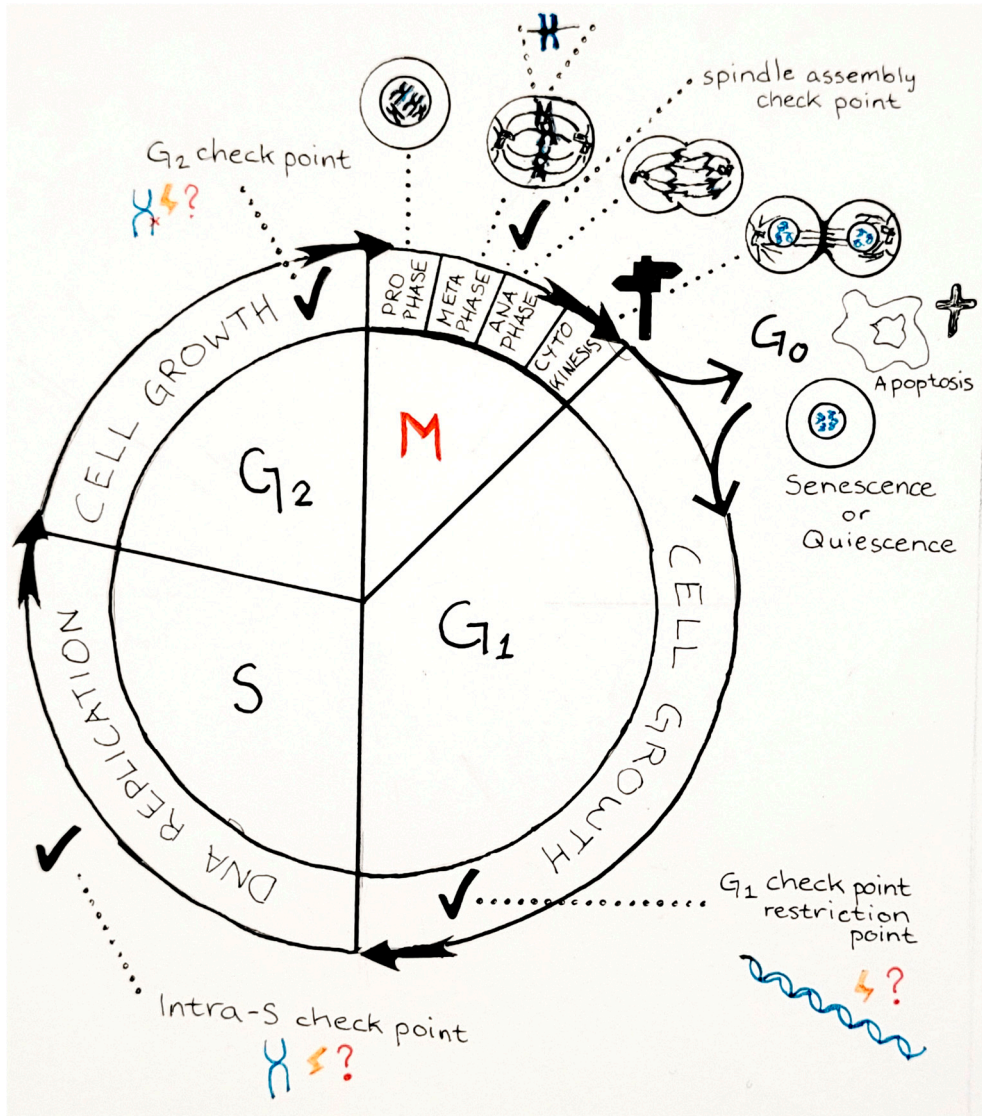 spindle assembly
check point
G2 check point
?
PRO
PHASE
META
PHASE
ANA
PHASE
CYTO
KINESIS
G0
Apoptosis
Senescence
or
Quiescence
CELL GROWTH
M
G2
G1
S
CELL GROWTH
DNA REPLICATION
G1 check point
restriction
point
?
Intra-S check point
?